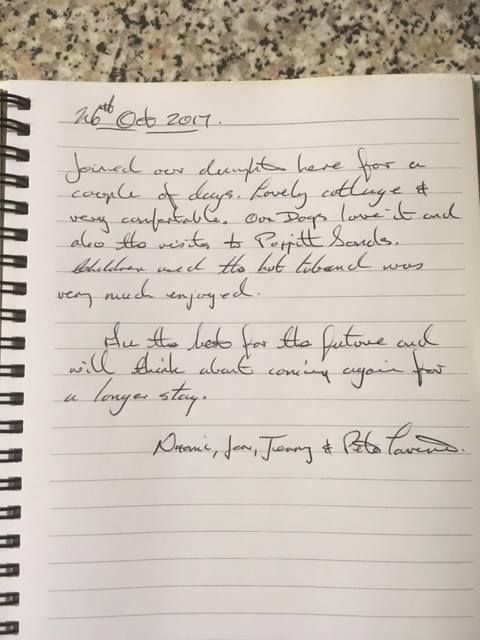 26th Oct 2017.
Joined our daughter here for a
couple of days. Lovely cottage &
very comfortable. Our Dogs love it and
also the visits to Poppitt Sands.
Children used the hot tub and was
very much enjoyed.
All the best for the future and
will think about coming again for
a longer stay.
Jenny & Pete